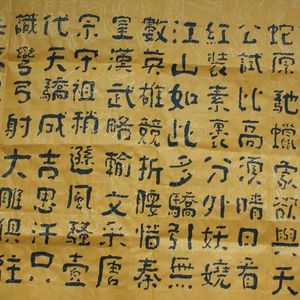 蛇原馳蠟象欲與天
公試比高須晴日看
紅裝素裹分外妖嬈
江山如此多驕引無
數英雄競折腰惜秦
皇漢武略輸文采唐
宗宋祖稍遜風騷壹
代天驕成吉思汗只
識彎弓射大雕俱往